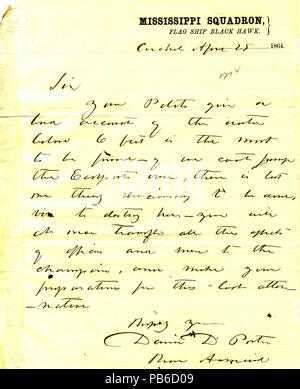 MISSISSIPPI SQUADRON,
FLAG SHIP BLACK HAWK,
Cricket April 25 1864.
Sir
Your Pilots give a
bad account of the water
below 6 feet is the most
to be found – if we cant jump
the Eastport over, there is but
one thing remaining to be done,
viz to destroy her – you will
at once transfer all the effects
of officers and men to the
Champion, and make your
preparations for this last alter
-native
Respy Yr
David D Porter
Rear Admiral
alamy
Image ID: PB6D09
www.alamy.com